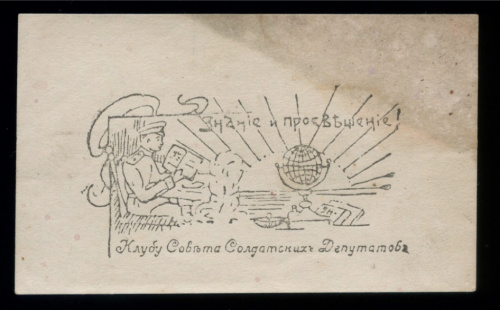 Знанiе и просвѣщенiе!
Клубу Совѣта Солдатскихъ Депутатовъ